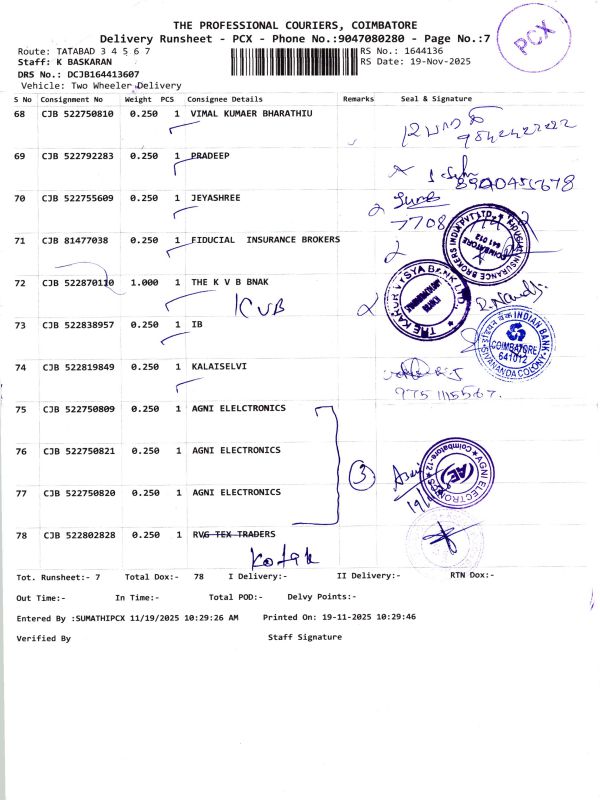 THE PROFESSIONAL COURIERS, COIMBATORE
Delivery Runsheet - PCX - Phone No.:9047080280 - Page No.:7
PCX
Route: TATABAD 3 4 5 6 7
RS No.: 1644136
Staff: K BASKARAN
RS Date: 19-Nov-2025
DRS No.: DCJB164413607
Vehicle: Two Wheeler Delivery
S No Consignment No Weight PCS Consignee Details Remarks Seal & Signature
68 CJB 522750810 0.250 1 VIMAL KUMAER BHARATHIU
69 CJB 522792283 0.250 1 PRADEEP
8940455678
70 CJB 522755609 0.250 1 JEYASHREE
7708
71 CJB 81477038 0.250 1 FIDUCIAL INSURANCE BROKERS
COIMBATORE 641 012
72 CJB 522870110 1.000 1 THE K V B BNAK
KVB
THE KARUR VYSYA BANK LTD.
73 CJB 522838957 0.250 1 IB
INDIAN BANK
COIMBATORE
641012
SIVANANDA COLONY
74 CJB 522819849 0.250 1 KALAISELVI
975 1115567.
75 CJB 522750809 0.250 1 AGNI ELELCTRONICS
76 CJB 522750821 0.250 1 AGNI ELECTRONICS
3
AGNI ELECTRONICS
Coimbatore-12
AE
77 CJB 522750820 0.250 1 AGNI ELECTRONICS
78 CJB 522802828 0.250 1 RVG TEX TRADERS
Kotak
Tot. Runsheet:- 7 Total Dox:- 78 I Delivery:- II Delivery:- RTN Dox:-
Out Time:- In Time:- Total POD:- Delvy Points:-
Entered By :SUMATHIPCX 11/19/2025 10:29:26 AM Printed On: 19-11-2025 10:29:46
Verified By Staff Signature